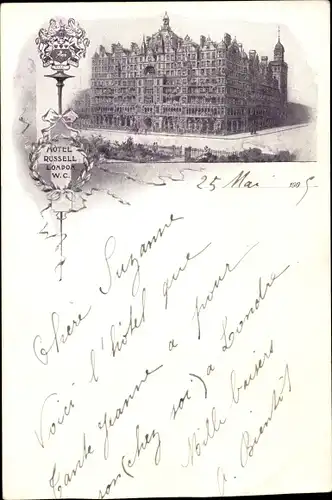 HOTEL
RUSSELL
LONDON
W.C.
25 Mai 1905
Chère Suzanne
Voici l'hôtel que
tante Jeanne a pour
son (chez soi) a Londre
Mille baisers
A. Bientôt